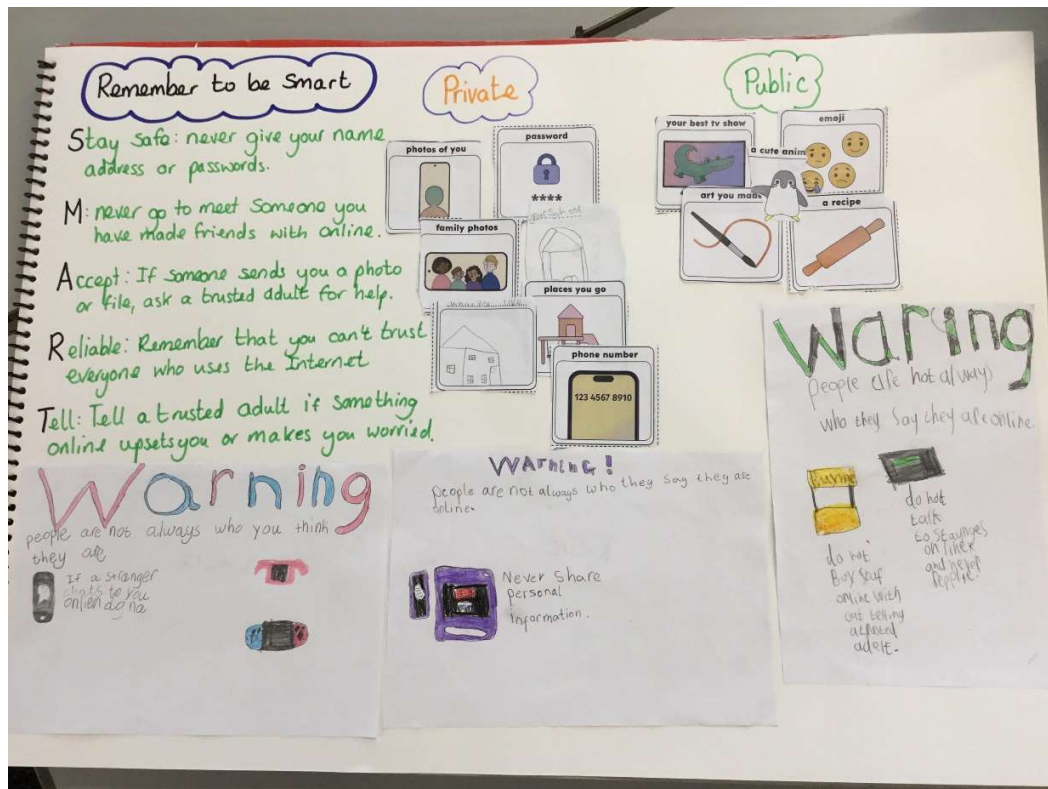 Remember to be Smart
Stay safe: never give your name
address or passwords.
M: never go to meet someone you
have made friends with online.
Accept: If someone sends you a photo
or file, ask a trusted adult for help.
Reliable: Remember that you can't trust
everyone who uses the Internet
Tell: Tell a trusted adult if something
online upsets you or makes you worried.
Private
photos of you
password
****
family photos
places you go
phone number
123 4567 8910
Public
your best tv show
emoji
a cute anim
art you made
a recipe
Warning
people are not always who you think
they are
If a stranger
chats to you
onlien do na
WArnING!
People are not always who they say they are
online.
Never Share
personal
information.
Waring
people are not always
who they say they are online.
do not
Buy stuf
online with
out telling
adelt.
do not
talk
to staynges
on liner
and never